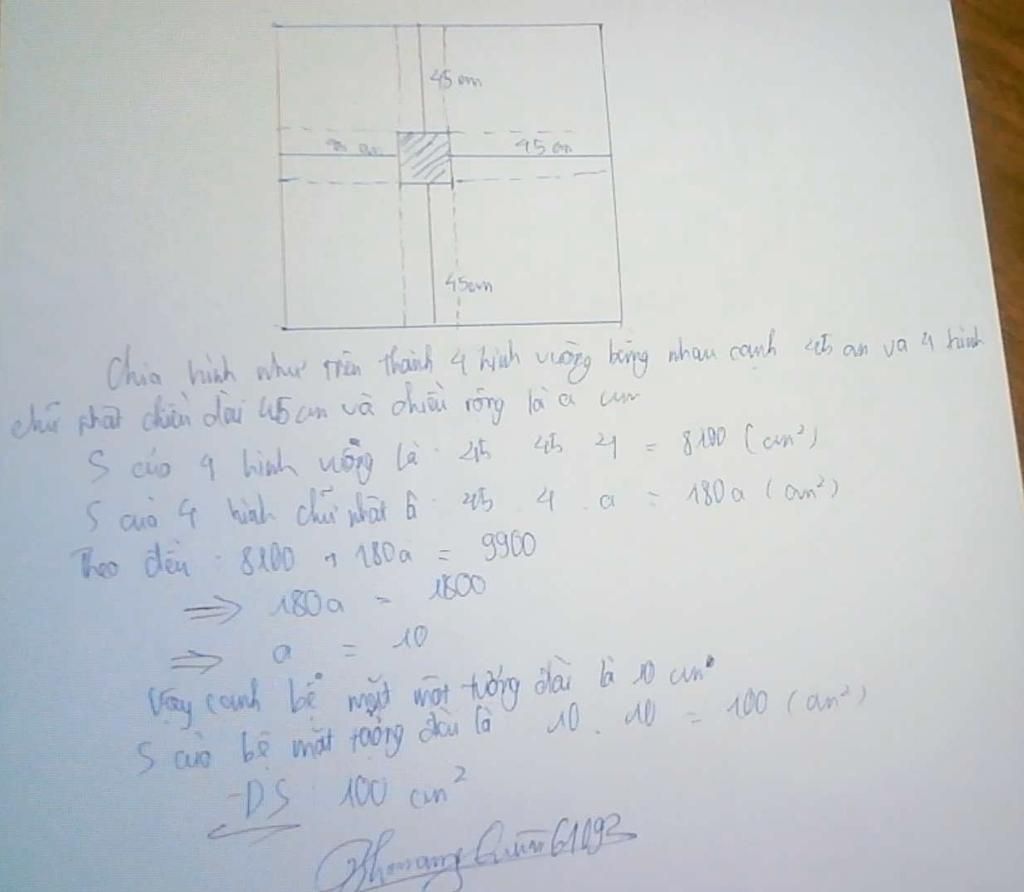 45 cm
45 cm
45cm
Chia hình như trên thành 4 hình vuông bằng nhau cạnh 45 cm và 4 hình
chữ nhật chiều dài 45 cm và chiều rộng là a cm
S của 4 hình vuông là : 45 . 45 . 4 = 8100 (cm²)
S của 4 hình chữ nhật là : 45 . 4 . a = 180a (cm²)
Theo đề : 8100 + 180a = 9900
=> 180a = 1800
=> a = 10
Vậy cạnh bệ mặt tường đài là 10 cm
S của bệ mặt tượng đài là 10 . 10 = 100 (cm²)
ĐS : 100 cm²